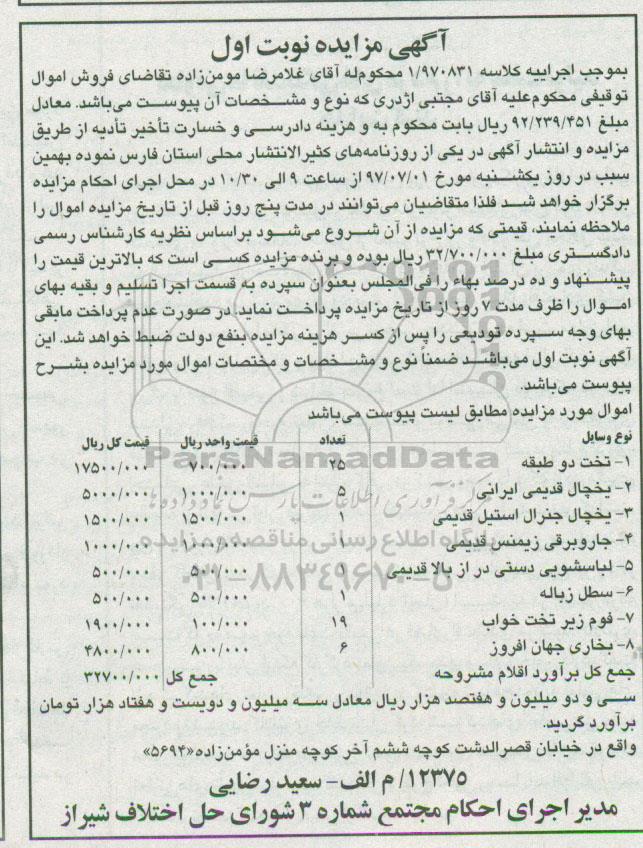 آگهی مزایده نوبت اول
بموجب اجراییه کلاسه ۱/۹۷۰۸۳۱ محکوم‌له آقای غلامرضا مومن‌زاده تقاضای فروش اموال
توقیفی محکوم‌علیه آقای مجتبی اژدری که نوع و مشخصات آن پیوست می‌باشد. معادل
مبلغ ۹۲/۲۳۹/۴۵۱ ریال بابت محکوم به و هزینه دادرسی و خسارت تأخیر تأدیه از طریق
مزایده و انتشار آگهی در یکی از روزنامه‌های کثیرالانتشار محلی استان فارس نموده بهمین
سبب در روز یکشنبه مورخ ۹۷/۰۷/۰۱ از ساعت ۹ الی ۱۰/۳۰ در محل اجرای احکام مزایده
برگزار خواهد شد فلذا متقاضیان می‌توانند در مدت پنج روز قبل از تاریخ مزایده اموال را
ملاحظه نمایند، قیمتی که مزایده از آن شروع می‌شود براساس نظریه کارشناس رسمی
دادگستری مبلغ ۳۲/۷۰۰/۰۰۰ ریال بوده و برنده مزایده کسی است که بالاترین قیمت را
پیشنهاد و ده درصد بهاء را فی‌المجلس بعنوان سپرده به قسمت اجرا تسلیم و بقیه بهای
اموال را ظرف مدت ۷ روز از تاریخ مزایده پرداخت نماید. در صورت عدم پرداخت مابقی
بهای وجه سپرده تودیعی را پس از کسر هزینه مزایده بنفع دولت ضبط خواهد شد. این
آگهی نوبت اول می‌باشد ضمناً نوع و مشخصات و مختصات اموال مورد مزایده بشرح
پیوست می‌باشد.
اموال مورد مزایده مطابق لیست پیوست می‌باشد
نوع وسایل تعداد قیمت واحد ریال قیمت کل ریال
۱- تخت دو طبقه ۲۵ ۷۰۰/۰۰۰ ۱۷۵۰۰/۰۰۰
۲- یخچال قدیمی ایرانی ۵ ۱۰۰۰/۰۰۰ ۵۰۰۰/۰۰۰
۳- یخچال جنرال استیل قدیمی ۱ ۱۵۰۰/۰۰۰ ۱۵۰۰/۰۰۰
۴- جاروبرقی زیمنس قدیمی ۱ ۱۰۰۰/۰۰۰ ۱۰۰۰/۰۰۰
۵- لباسشویی دستی در از بالا قدیمی ۱ ۵۰۰/۰۰۰ ۵۰۰/۰۰۰
۶- سطل زباله ۱ ۵۰۰/۰۰۰ ۵۰۰/۰۰۰
۷- فوم زیر تخت خواب ۱۹ ۱۰۰/۰۰۰ ۱۹۰۰/۰۰۰
۸- بخاری جهان افروز ۶ ۸۰۰/۰۰۰ ۴۸۰۰/۰۰۰
جمع کل برآورد اقلام مشروحه جمع کل ۳۲۷۰۰/۰۰۰
سی و دو میلیون و هفتصد هزار ریال معادل سه میلیون و دویست و هفتاد هزار تومان
برآورد گردید.
واقع در خیابان قصرالدشت کوچه ششم آخر کوچه منزل مؤمن‌زاده«۵۶۹۴»
۱۲۳۷۵/ م الف- سعید رضایی
مدیر اجرای احکام مجتمع شماره ۳ شورای حل اختلاف شیراز
ParsNamadData
مرکز فرآوری اطلاعات پارس نماد داده‌ها
پایگاه اطلاع رسانی مناقصه و مزایده
۰۲۱-۸۸۳۴۹۶۷۰-۵